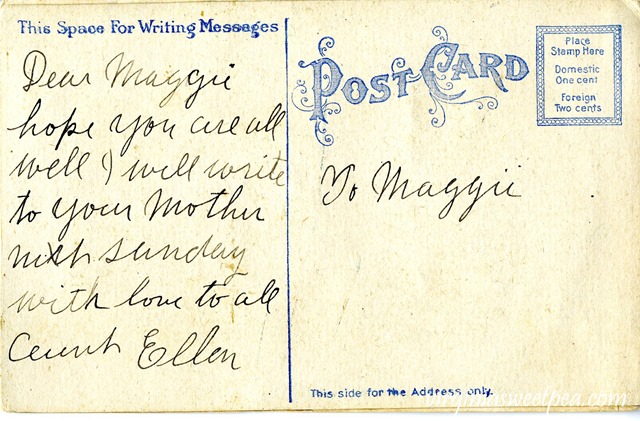 This Space For Writing Messages
Dear Maggie
hope you are all
well I will write
to your Mother
next sunday
with love to all
aunt Ellen
POST CARD
Place
Stamp Here
Domestic
One cent
Foreign
Two cents
To Maggie
This side for the Address only.
sweetpea.com